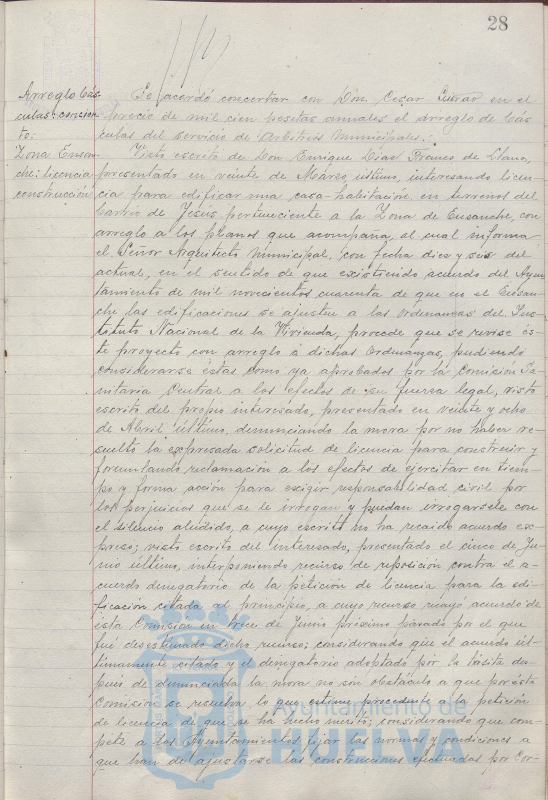 28
Arreglo bás-
culas: concier-
to:
Se acordó concertar con Don Cesar en el
precio de mil cien pesetas anuales el arreglo de bás
culas del servicio de Arbitrios Municipales.
Zona Ensan-
che: licencia
construcción
Visto escrito de Don Enrique Dias Franco de Llano,
presentado en veinte de Marzo último, interesando licen-
cia para edificar una casa-habitación en terrenos del
barrio de Jesus perteneciente a la Zona de Ensanche, con
arreglo a los planos que acompaña, al cual informa
el Señor Arquitecto Municipal, con fecha diez y seis del
actual, en el sentido de que existiendo acuerdo del Ayun
tamiento de mil novecientos cuarenta de que en el Ensan-
che las edificaciones se ajusten a las ordenanzas del Ins-
tituto Nacional de la Vivienda, procede que se revise és-
te proyecto con arreglo á dichas Ordenanzas, pudiendo
considerarse éstas como ya aprobadas por la Comisión Sa-
nitaria Central a los efectos de su fuerza legal, visto
escrito del propio interesado, presentado en veinte y ocho
de Abril último, denunciando la mora por no haber re-
suelto la expresada solicitud de licencia para construir y
formulando reclamación a los efectos de ejercitar en tiem-
po y forma acción para exigir responsabilidad civil por
los perjuicios que se le irrogan y puedan irrogarsele con
el silencio aludido, a cuyo escrito no ha recaido acuerdo ex-
preso; visto escrito del interesado, presentado el cinco de Ju-
nio último, interponiendo recurso de reposición contra el a-
cuerdo denegatorio de la petición de licencia para la edi-
ficación citada al principio, a cuyo recurso recayó acuerdo de
esta Comisión en trece de Junio próximo pasado por el que
fué desestimado dicho recurso; considerando que el acuerdo úl-
timamente citado y el denegatorio adoptado por la tácita des-
pués de denunciada la mora no sin obstáculo a que por ésta
Comisión se resuelva lo que estime procedente a la petición
de licencia de que se ha hecho merito; considerando que com-
pete a los Ayuntamientos fijar las normas y condiciones a
que han de ajustarse las construcciones efectuadas por Cor-
Ayuntamiento de
HUELVA